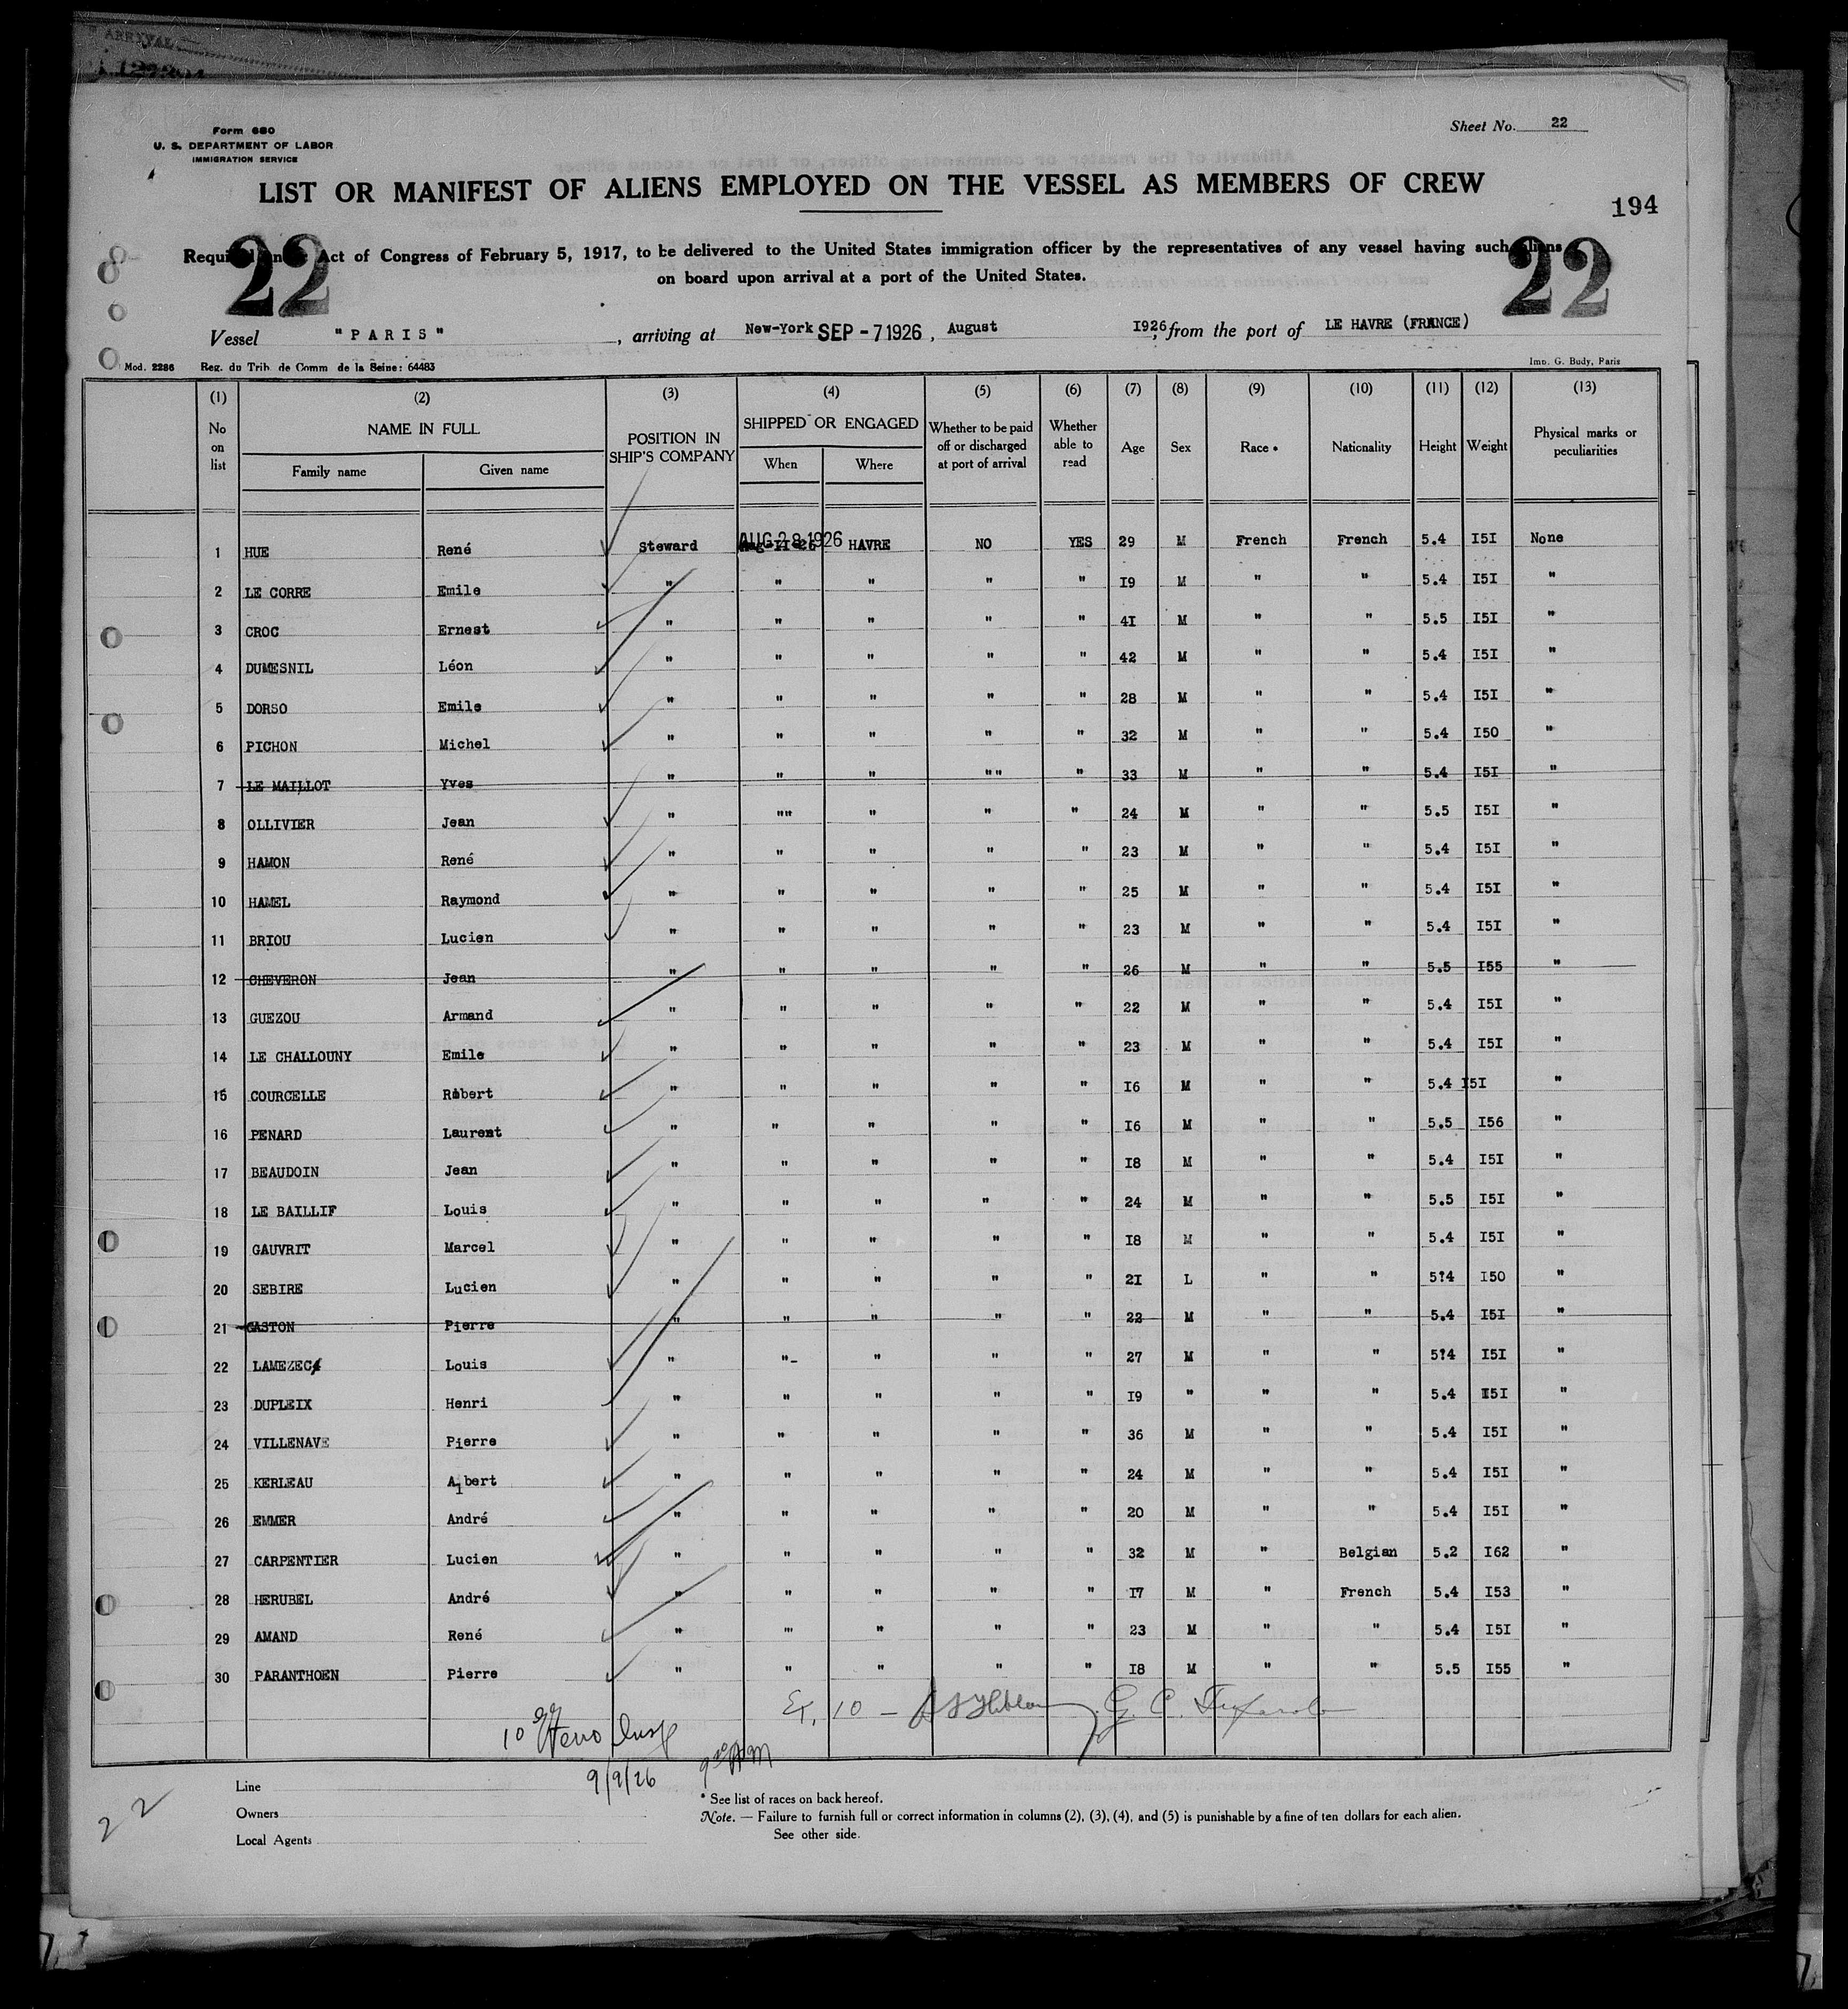 ARRIVAL
Form 680
U. S. DEPARTMENT OF LABOR
IMMIGRATION SERVICE
Sheet No. 22
LIST OR MANIFEST OF ALIENS EMPLOYED ON THE VESSEL AS MEMBERS OF CREW
194
Required under Act of Congress of February 5, 1917, to be delivered to the United States immigration officer by the representatives of any vessel having such aliens
on board upon arrival at a port of the United States.
22 22
Vessel "PARIS", arriving at New-York SEP -7 1926, August 1926, from the port of LE HAVRE (FRANCE)
Mod. 2286 Reg. du Trib. de Comm de la Seine: 64483 Imp. G. Budy, Paris
(1) (2) (3) (4) (5) (6) (7) (8) (9) (10) (11) (12) (13)
No on list NAME IN FULL POSITION IN SHIP'S COMPANY SHIPPED OR ENGAGED Whether to be paid off or discharged at port of arrival Whether able to read Age Sex Race * Nationality Height Weight Physical marks or peculiarities
Family name Given name When Where
1 HUE René Steward Aug-II-26 AUG 28 1926 HAVRE NO YES 29 M French French 5.4 I5I None
2 LE CORRE Emile " " " " " I9 M " " 5.4 I5I "
3 CROC Ernest " " " " " 4I M " " 5.5 I5I "
4 DUMESNIL Léon " " " " " 42 M " " 5.4 I5I "
5 DORSO Emile " " " " " 28 M " " 5.4 I5I "
6 PICHON Michel " " " " " 32 M " " 5.4 I50 "
7 LE MAILLOT Yves " " " "" " 33 M " " 5.4 I5I "
8 OLLIVIER Jean " "" " " " 24 M " " 5.5 I5I "
9 HAMON René " " " " " 23 M " " 5.4 I5I "
10 HAMEL Raymond " " " " " 25 M " " 5.4 I5I "
11 BRIOU Lucien " " " " " 23 M " " 5.4 I5I "
12 CHEVERON Jean " " " " " 26 M " " 5.5 I55 "
13 GUEZOU Armand " " " " " 22 M " " 5.4 I5I "
14 LE CHALLOUNY Emile " " " " " 23 M " " 5.4 I5I "
15 COURCELLE Robert " " " " " I6 M " " 5.4 I5I "
16 PENARD Laurent " " " " " I6 M " " 5.5 I56 "
17 BEAUDOIN Jean " " " " " I8 M " " 5.4 I5I "
18 LE BAILLIF Louis " " " " " 24 M " " 5.5 I5I "
19 GAUVRIT Marcel " " " " " I8 M " " 5.4 I5I "
20 SEBIRE Lucien " " " " " 2I L " " 5?4 I50 "
21 GASTON Pierre " " " " " 22 M " " 5.4 I5I "
22 LAMEZEC Louis " "- " " " 27 M " " 5?4 I5I "
23 DUPLEIX Henri " " " " " I9 " " " 5.4 I5I "
24 VILLENAVE Pierre " " " " " 36 M " " 5.4 I5I "
25 KERLEAU Albert " " " " " 24 M " " 5.4 I5I "
26 EMMER André " " " " " 20 M " " 5.4 I5I "
27 CARPENTIER Lucien " " " " " 32 M " Belgian 5.2 I62 "
28 HERUBEL André " " " " " I7 M " French 5.4 I53 "
29 AMAND René " " " " " 23 M " " 5.4 I5I "
30 PARANTHOEN Pierre " " " " " I8 M " " 5.5 I55 "
10 -
G. C.
10
9/9/26
Line
Owners
Local Agents
* See list of races on back hereof.
Note. — Failure to furnish full or correct information in columns (2), (3), (4), and (5) is punishable by a fine of ten dollars for each alien.
See other side.
22